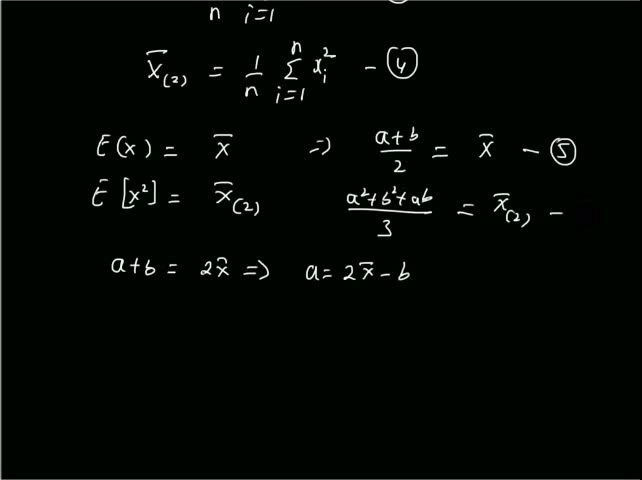 n i=1
X̄(2) = 1/n Σ_{i=1}^{n} x_i^2 - ④
E(x) = x̄ => (a+b)/2 = x̄ - ⑤
E[x²] = x̄(2) (a²+b²+ab)/3 = x̄(2) -
a+b = 2x̄ => a = 2x̄ - b